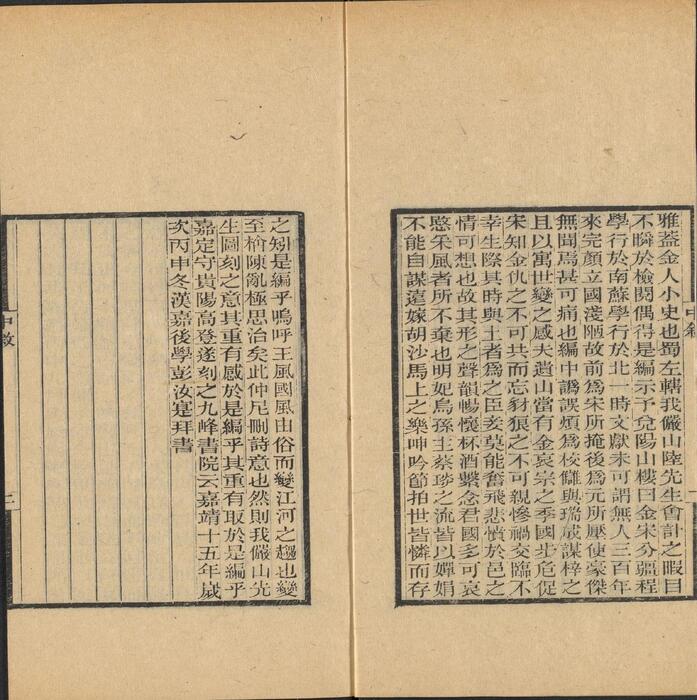 雅葢金人小史也蜀左轄我儼山陸先生會計之暇目
不瞬於檢閱偶得是編示予兌陽山樓曰金宋分疆程
學行於南蘇學行於北一時文獻未可謂無人三百年
來完顏立國淺陋故前為宋所掩後為元所壓使豪傑
無聞焉甚可痛也編中譌誤煩為校讎與瑞成謀梓之
且以寓世變之感夫遺山當有金哀宗之季國步危促
宋知金仇之不可共而忘豺狼之不可親慘禍交臨不
幸生際其時與土者為之臣妾莫能奮飛悲憤於邑之
情可想也故其形之聲韻暢懷杯酒繫念君國多可哀
愍采風者所不棄也明妃烏孫主蔡琰之流皆以嬋娟
不能自謀遠嫁胡沙馬上之樂呻吟節拍世皆憐而存
之矧是編乎嗚呼王風國風由俗而變江河之趨也變
至檜陳亂極思治矣此仲尼刪詩意也然則我儼山先
生圖刻之意其重有感於是編乎其重有取於是編乎
嘉定守貴陽高登遂刻之九峰書院云嘉靖十五年歲
次丙申冬漢嘉後學彭汝寔拜書